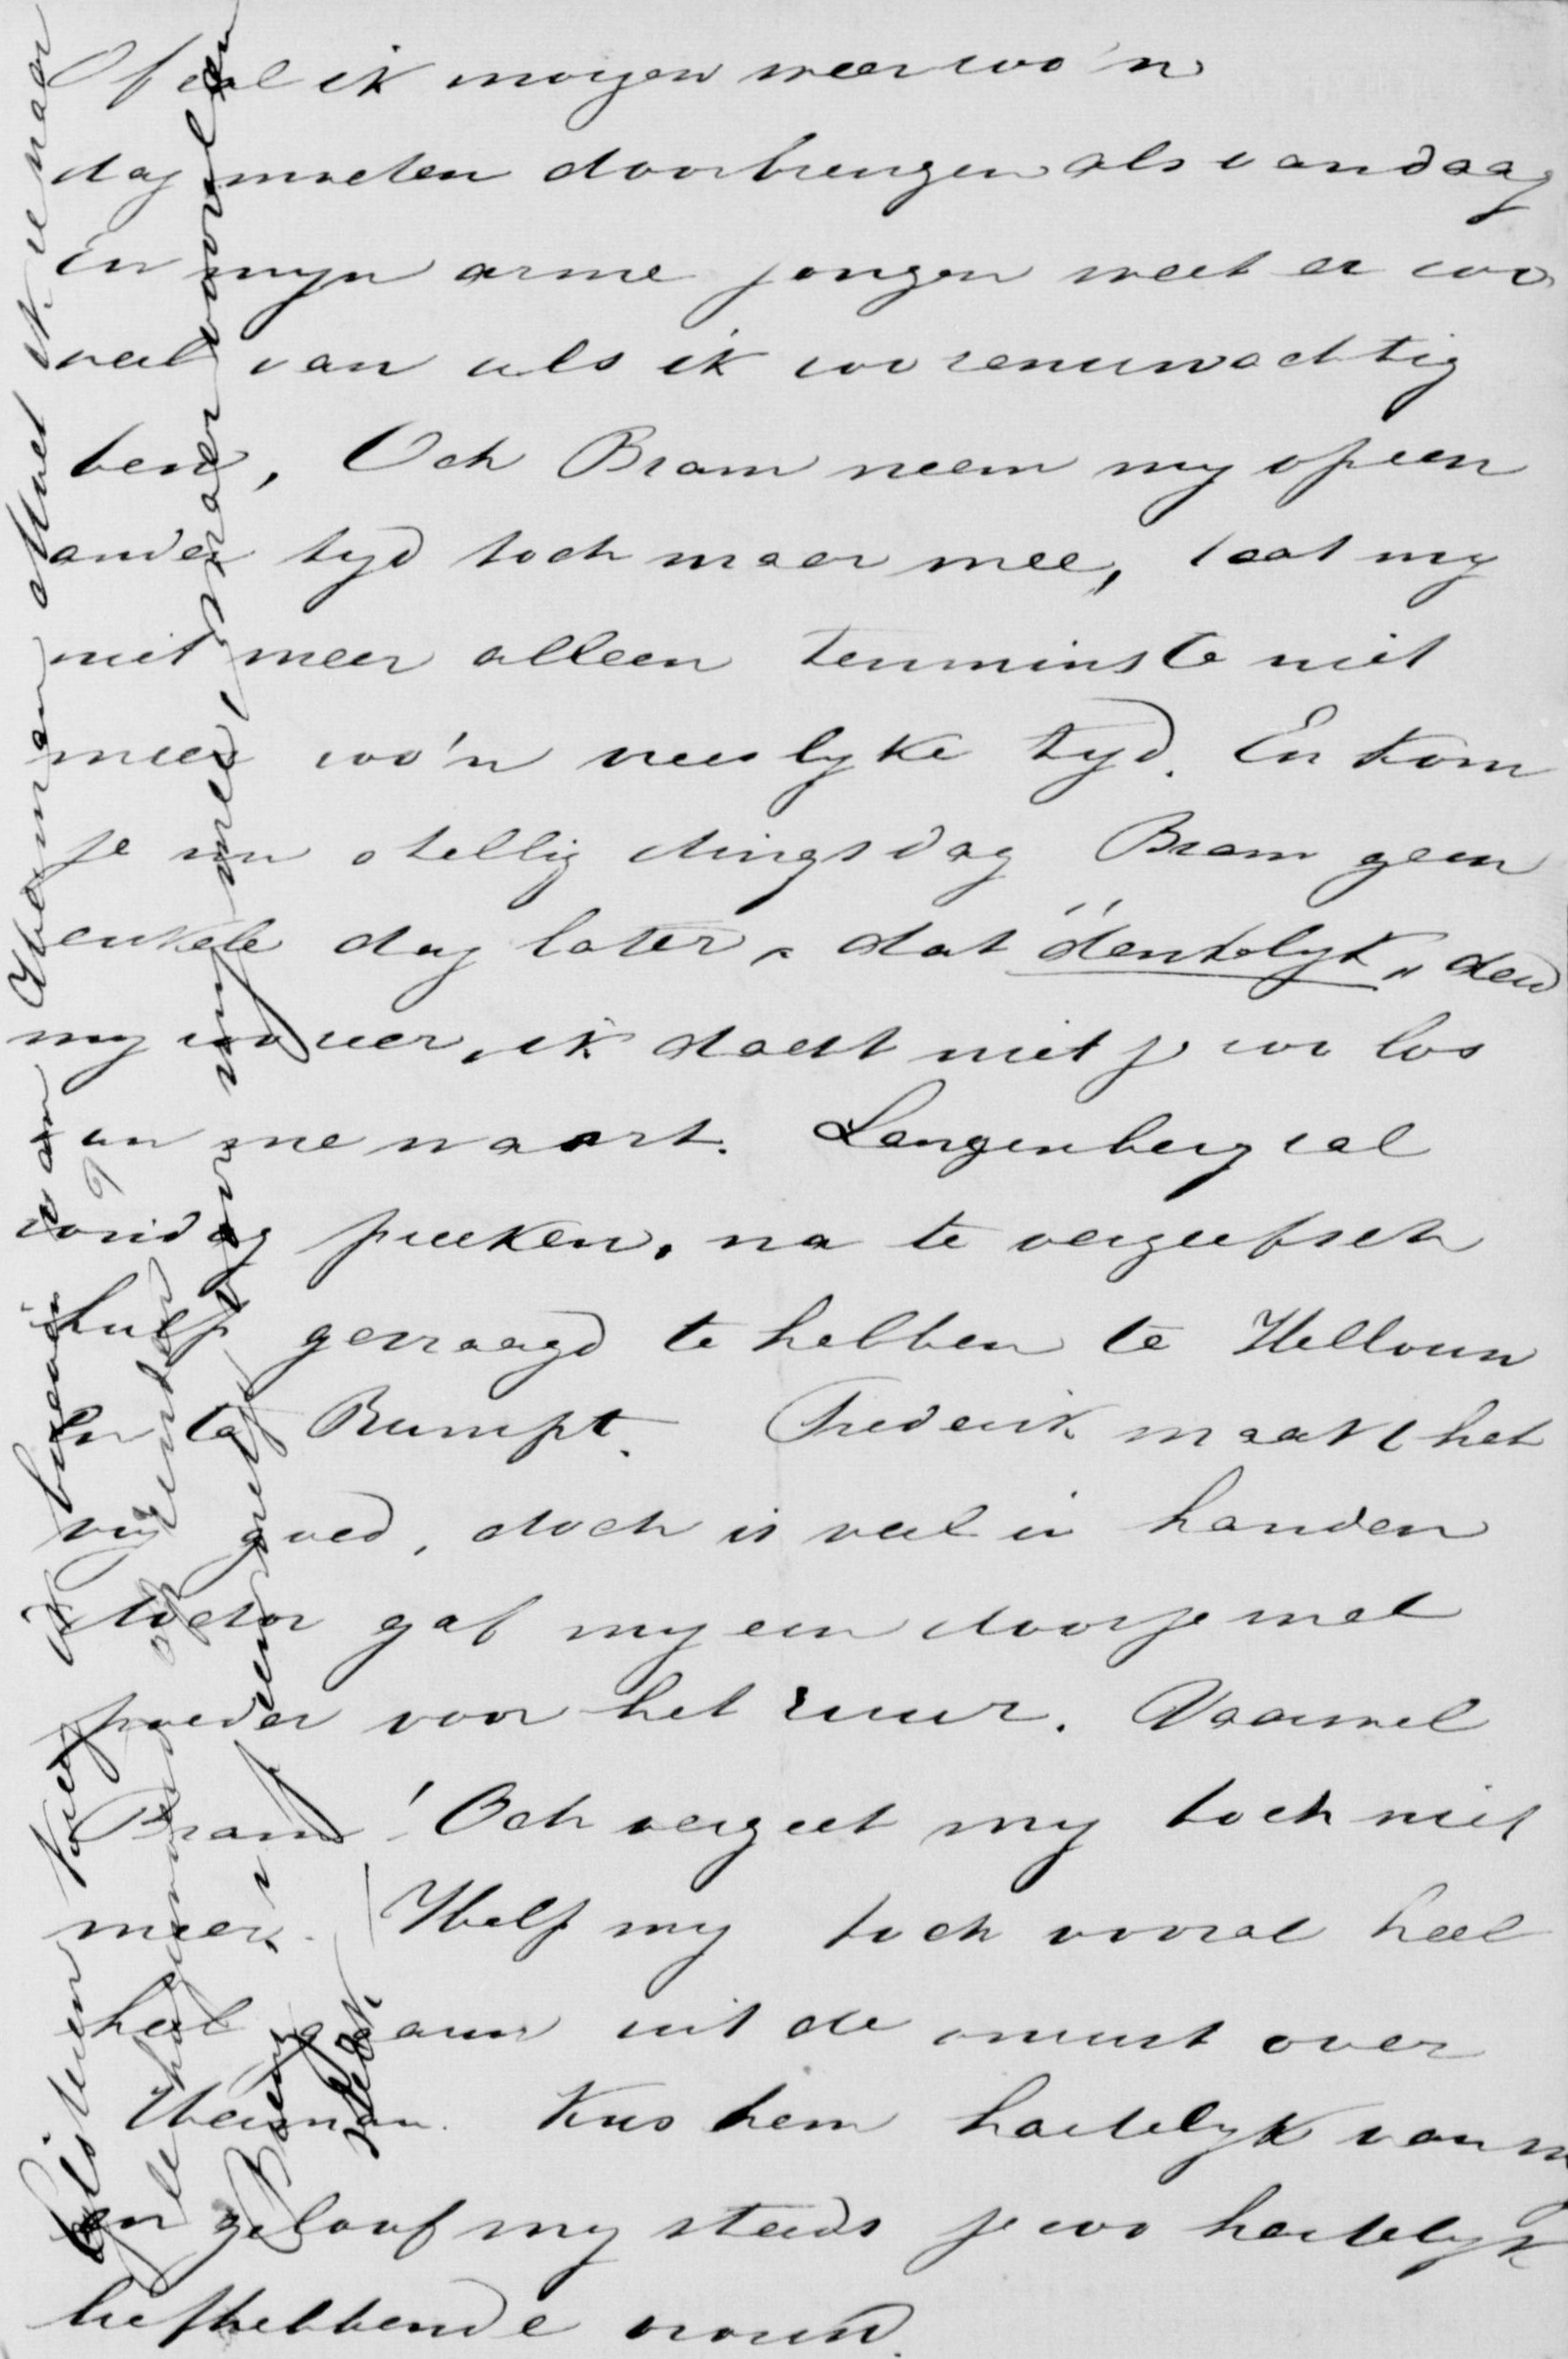 Of zal ik morgen weer zoo'n
dag moeten doorbrengen als vandaag
En myn arme jongen weet er zoo
veel van als ik zoo zenuwachtig
ben, Och Bram neem my op een
ander tyd toch maar mee, laat my
niet meer alleen tenminste niet
meer zoo'n vreeslyke tyd. En kom
je nu stellig dingsdag Bram geen
enkele dag later, dat "denkelyk" deed
my zoo zeer, ik dacht niet je zoo los
van me waart. Langenberg zal
zondag preeken, na te vergeefsch
hulp gevraagd te hebben te Hellouw
En te Rumpt. Frederik maakt het
vry goed, doch is veel in handen
doctor gaf my een doosje met
poeder voor het zuur. Vaarwel
Bram! Och vergeet my toch niet
meer. Help my toch vooral heel
heel gauw uit de onrust over
Herman. Kus hem hartelyk van m
en geloof my steeds je zoo hartelyk
liefhebbende vrouw.
Gisteren kreeg ik brieven van Herman Moet ik je naar